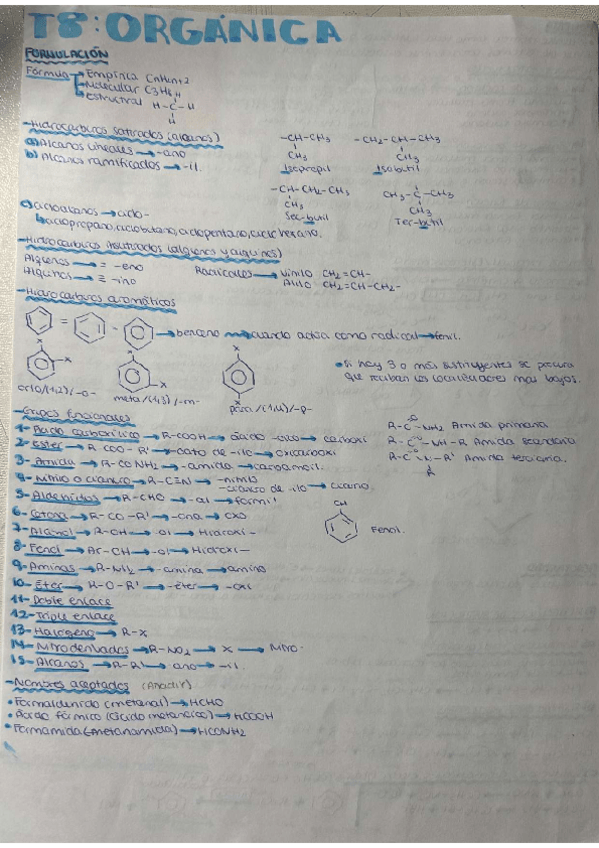 T8: ORGÁNICA
FORMULACIÓN
Fórmula Empírica CnH2n+2
Molecular C3H8
Estructural H-C-H
H
-Hidrocarburos saturados (alcanos)
a) Alcanos lineales → -ano
b) Alcanos ramificados → -il.
-CH-CH3
CH3
Isopropil
-CH2-CH-CH3
CH3
Isobutil
-CH-CH2-CH3
CH3
Sec-butil
CH3-C-CH3
CH3
Ter-butil
c) cicloalcanos → ciclo-
↳ ciclopropano, ciclobutano, ciclopentano, ciclohexano.
-Hidrocarburos insaturados (alquenos y alquinos)
Alquenos → = -eno
Alquinos → ≡ -ino
Radicales → Vinilo CH2=CH-
Alilo CH2=CH-CH2-
-Hidrocarburos aromáticos
= - → benceno → cuando actúa como radical → fenil.
X X X X X X
orto/(1,2)/-o-
meta/(1,3)/-m-
para/(1,4)/-p-
• Si hay 3 o más sustituyentes se procura
que reciban los localizadores más bajos.
-Grupos funcionales
1- Ácido carboxílico → R-COOH → ácido -oico → carboxi
2- Éster → R-COO-R' → -oato de -ilo → oxicarboxi
3- Amida → R-CONH2 → -amida → carbamoil.
4- Nitrilo o cianuro → R-C≡N → -nitrilo
-cianuro de -ilo → ciano.
5- Aldehídos → R-CHO → -al → formil
6- Cetona → R-CO-R' → -ona → oxo
7- Alcohol → R-OH → -ol → Hidroxi-
8- Fenol → Ar-OH → -ol → Hidroxi-
9- Aminas → R-NH2 → -amina → amino
10- Éter → R-O-R' → -éter → -oxi
11- Doble enlace
12- Triple enlace
13- Halógeno → R-X
14- Nitroderivados → R-NO2 → X → Nitro-
15- Alcanos → R-R' → ano → -il.
R-C-NH2 Amida primaria
R-C-NH-R Amida secundaria
R-C-N-R' Amida terciaria.
R
OH
Fenol.
-Nombres aceptados (Añadir)
• Formaldehído (metanal) → HCHO
• Ácido fórmico (ácido metanoico) → HCOOH
• Formamida (metanamida) → HCONH2